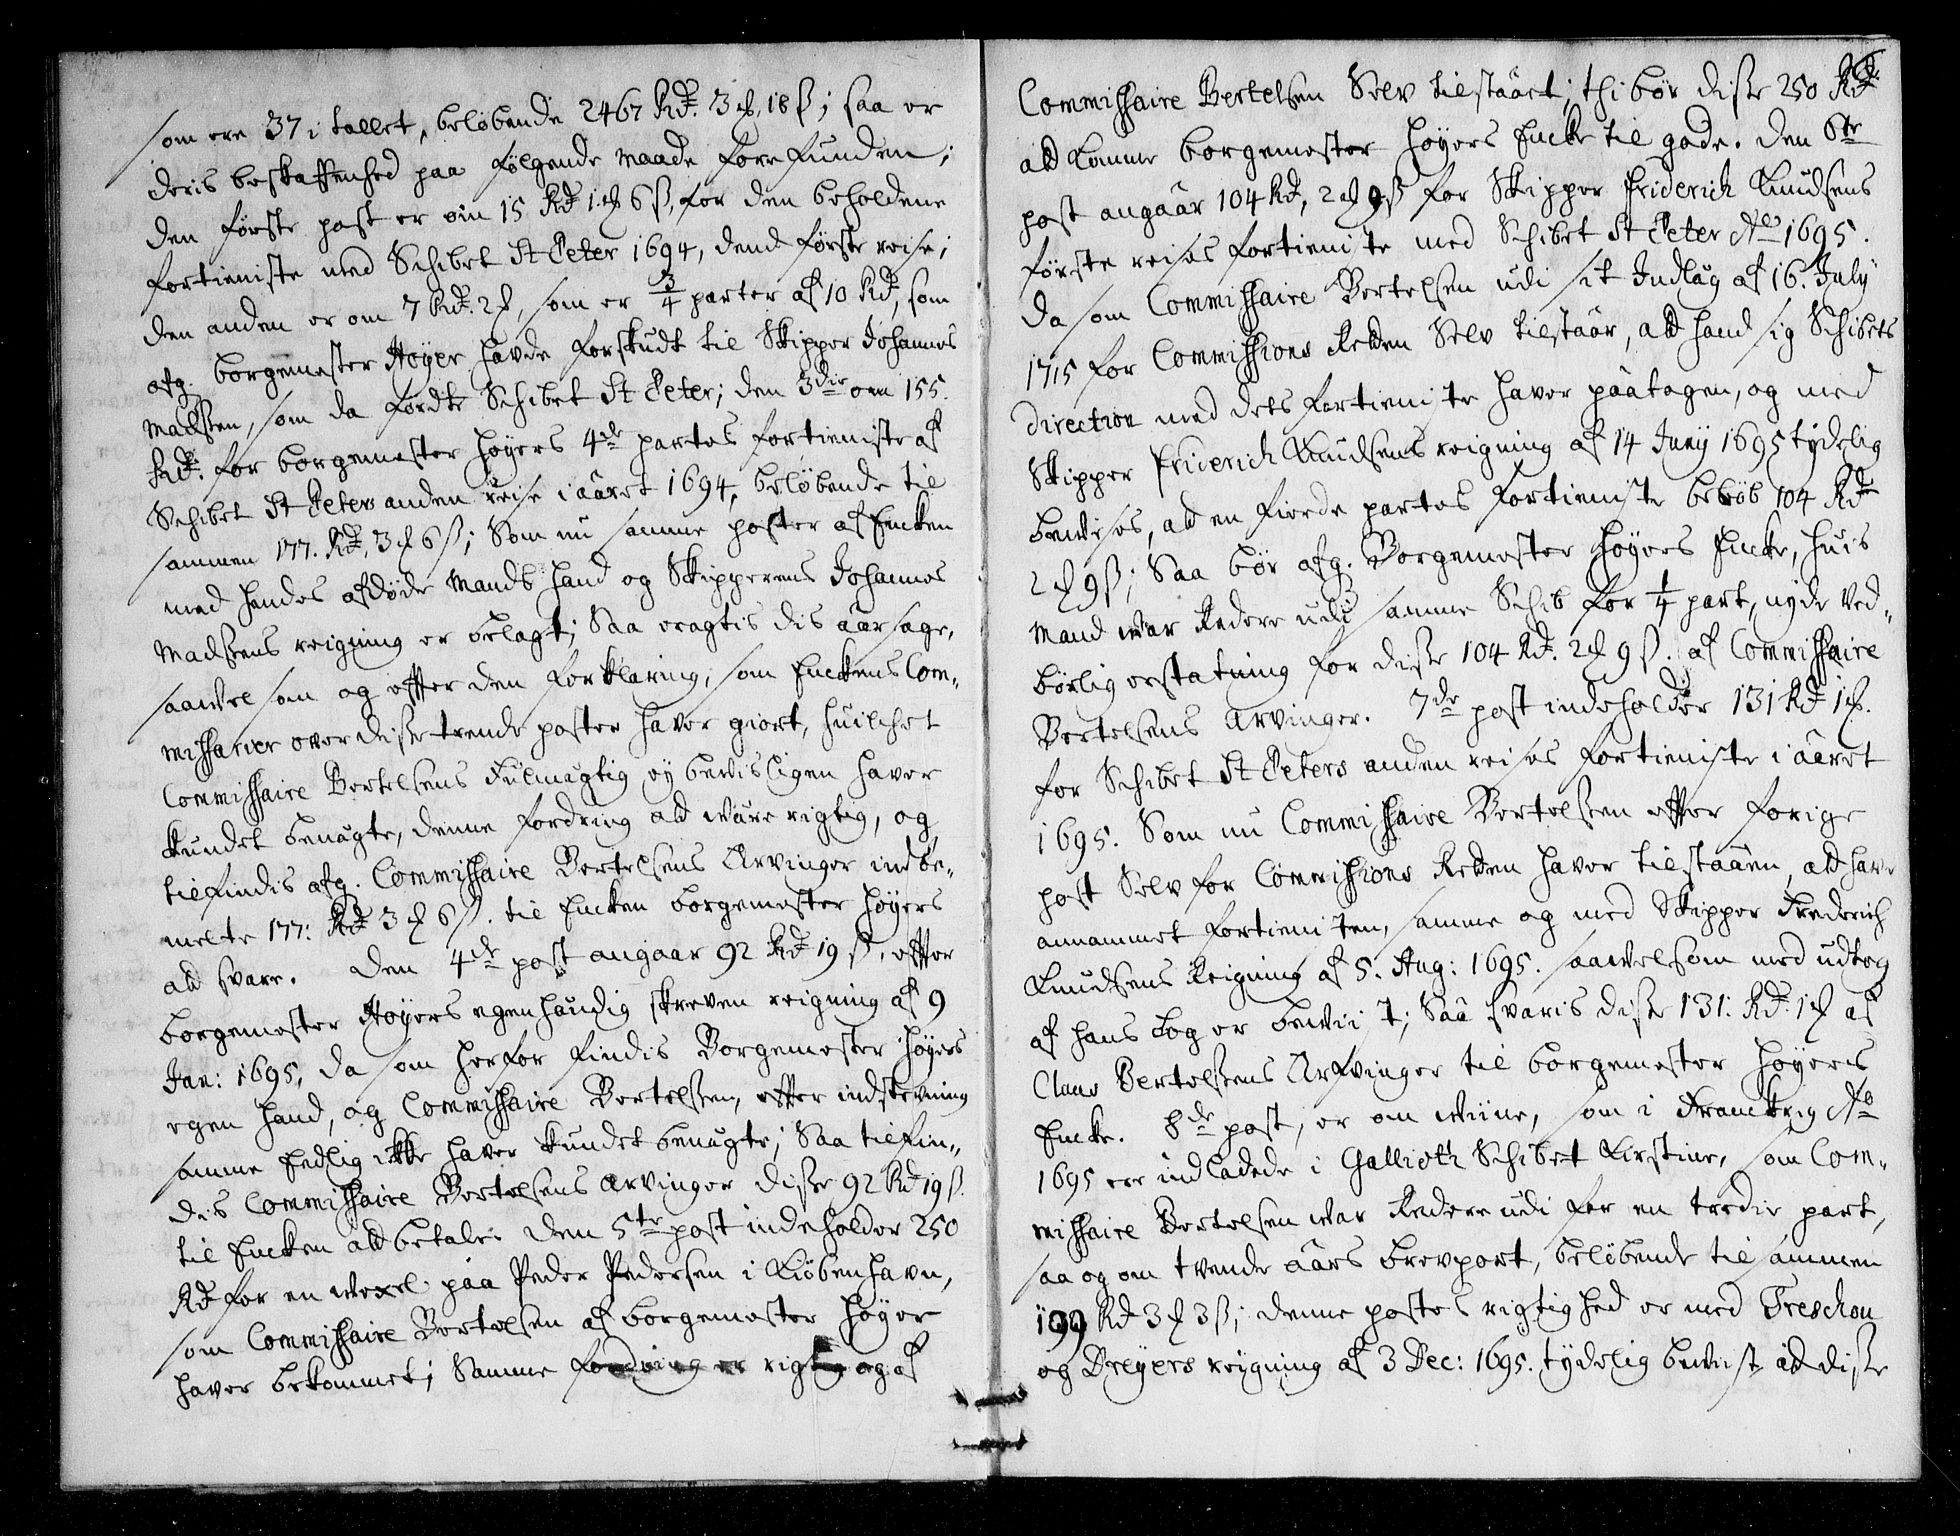 som ere 37 i tallet, beløbende 2467 Rd. 3 ₰, 18 ß; saa er
deris beskaffenhed paa følgende maade forefunden;
den første post er om 15 Rd 1 ₰ 6 ß, for den beholdene
fortieniste med Schibet St Peter 1694, dend første reise;
den anden er om 7 Rd. 2 ₰, som er 3/4 parter af 10 Rd, som
afg. borgemester Høyer havde forskudt til Skipper Johannes
Madsen, som da førdte Schibet St Peter; den 3die om 155.
Rd. for borgemester Høyers 4de partes fortieniste af
Schibet St Peters anden reise i aaret 1694, beløbende til
sammen 177. Rd, 3 ₰ 6 ß; Som nu samme poster af Encken
med hendes afdøde Mands haand og Skipperens Johannes
Madsens reigning er belagt; Saa eragtis dis aarsage,
saavel som og effter den forklaring, som Enckens Com-
missarier over disse trende poster haver giort, huilchet
Commissaire Bertelsens Fulmægtig ej bevisligen haver
kundet benægte, denne fordring at være rigtig, og
tilfindis afg. Commissaire Bertelsens Arvinger indbe-
melte 177: Rd 3 ₰ 6 ß. til Encken borgemester Høyers
ad svare. Den 4de post angaar 92 Rd 19 ß, effter
borgemester Høyers egenhændig skreven reigning af 9
Jan: 1695, da som herfor findis Borgemester Høyers
egen haand, og Commissaire Bertelsen, effter indstevning
samme Eedlig ikke haver kundet benægte; Saa tilfin-
dis Commissaire Bertelsens Arvinger disse 92 Rd 19 ß.
til Encken ad betale. Den 5te post indeholder 250
Rd for en Wexel paa Peder Pedersen i Kiøbenhavn,
som Commissaire Bertelsen af borgemester Høyer
haver bekommet; Samme fordring er rigtig og af
6.
Commissaire Bertelsen Selv tilstaaet; thi bør disse 250 Rd
ad komme borgemester Høyers Encke til gode. Den 6te
post angaar 104 Rd, 2 ₰ 9 ß for Skipper Friderich Knudsens
første reises fortieniste med Schibet St Peter Ao 1695.
Da som Commissaire Bertelsen udi sit Indlæg af 16. July
1715 for Commissions Retten Selv tilstaar, ad hand sig Schibets
direction med dets fortieniste haver paatagen, og med
Skipper Friderich Knudsens reigning af 14 Junij 1695 tydelig
bevises, ad en fierde partes fortieniste beløb 104 Rd
2 ₰ 9 ß; Saa bør afg. Borgemester Høyers Encke, huis
Mand var Redere udi samme Schib for 1/4 part, nyde ved-
børlig erstatning for disse 104 Rd. 2 ₰ 9 ß. af Commissaire
Bertelsens Arvinger. 7de post indeholder 131 Rd 1 ₰.
for Schibet St Peters anden reises fortieniste i aaret
1695. Som nu Commissaire Bertelsen effter forige
post Selv for Commissions Retten haver tilstaaen, ad have
annammet fortienisten, samme og med Skipper Frederich
Knudsens Reigning af 5. Aug: 1695. saavelsom med udtog
af hans bog er beviist; Saa svaris disse 131: Rd 1 ₰ af
Claus Bertelsens Arfvinger til borgemester Høyers
Encke. 8de post, er om Wiine, som i Franckrig Ao
1695 ere indladede i Gallioth Schibet Kirstine, som Com-
missaire Bertelsen var Redere udi for en tredie part,
saa og om tvende aars brevport, beløbende tilsammen
199 Rd 3 ₰ 3 ß; denne postes rigtighed er med Treschou
og Dreyers reigning af 3 Dec: 1695. tydelig bevist ad disse